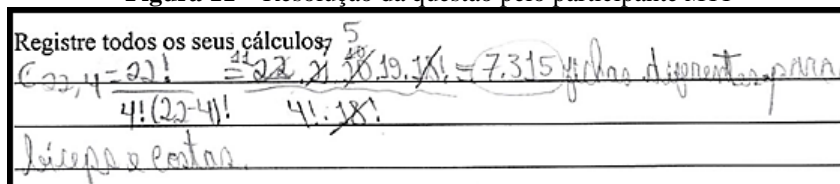 Figura 11 - Resolução da questão pelo participante M11
Registre todos os seus cálculos,
C 22,4 = 22! / 4!(22-4)! = 22.21.20.19.18! / 4!.18! = 7.315 fichas diferentes para
bíceps e costas.